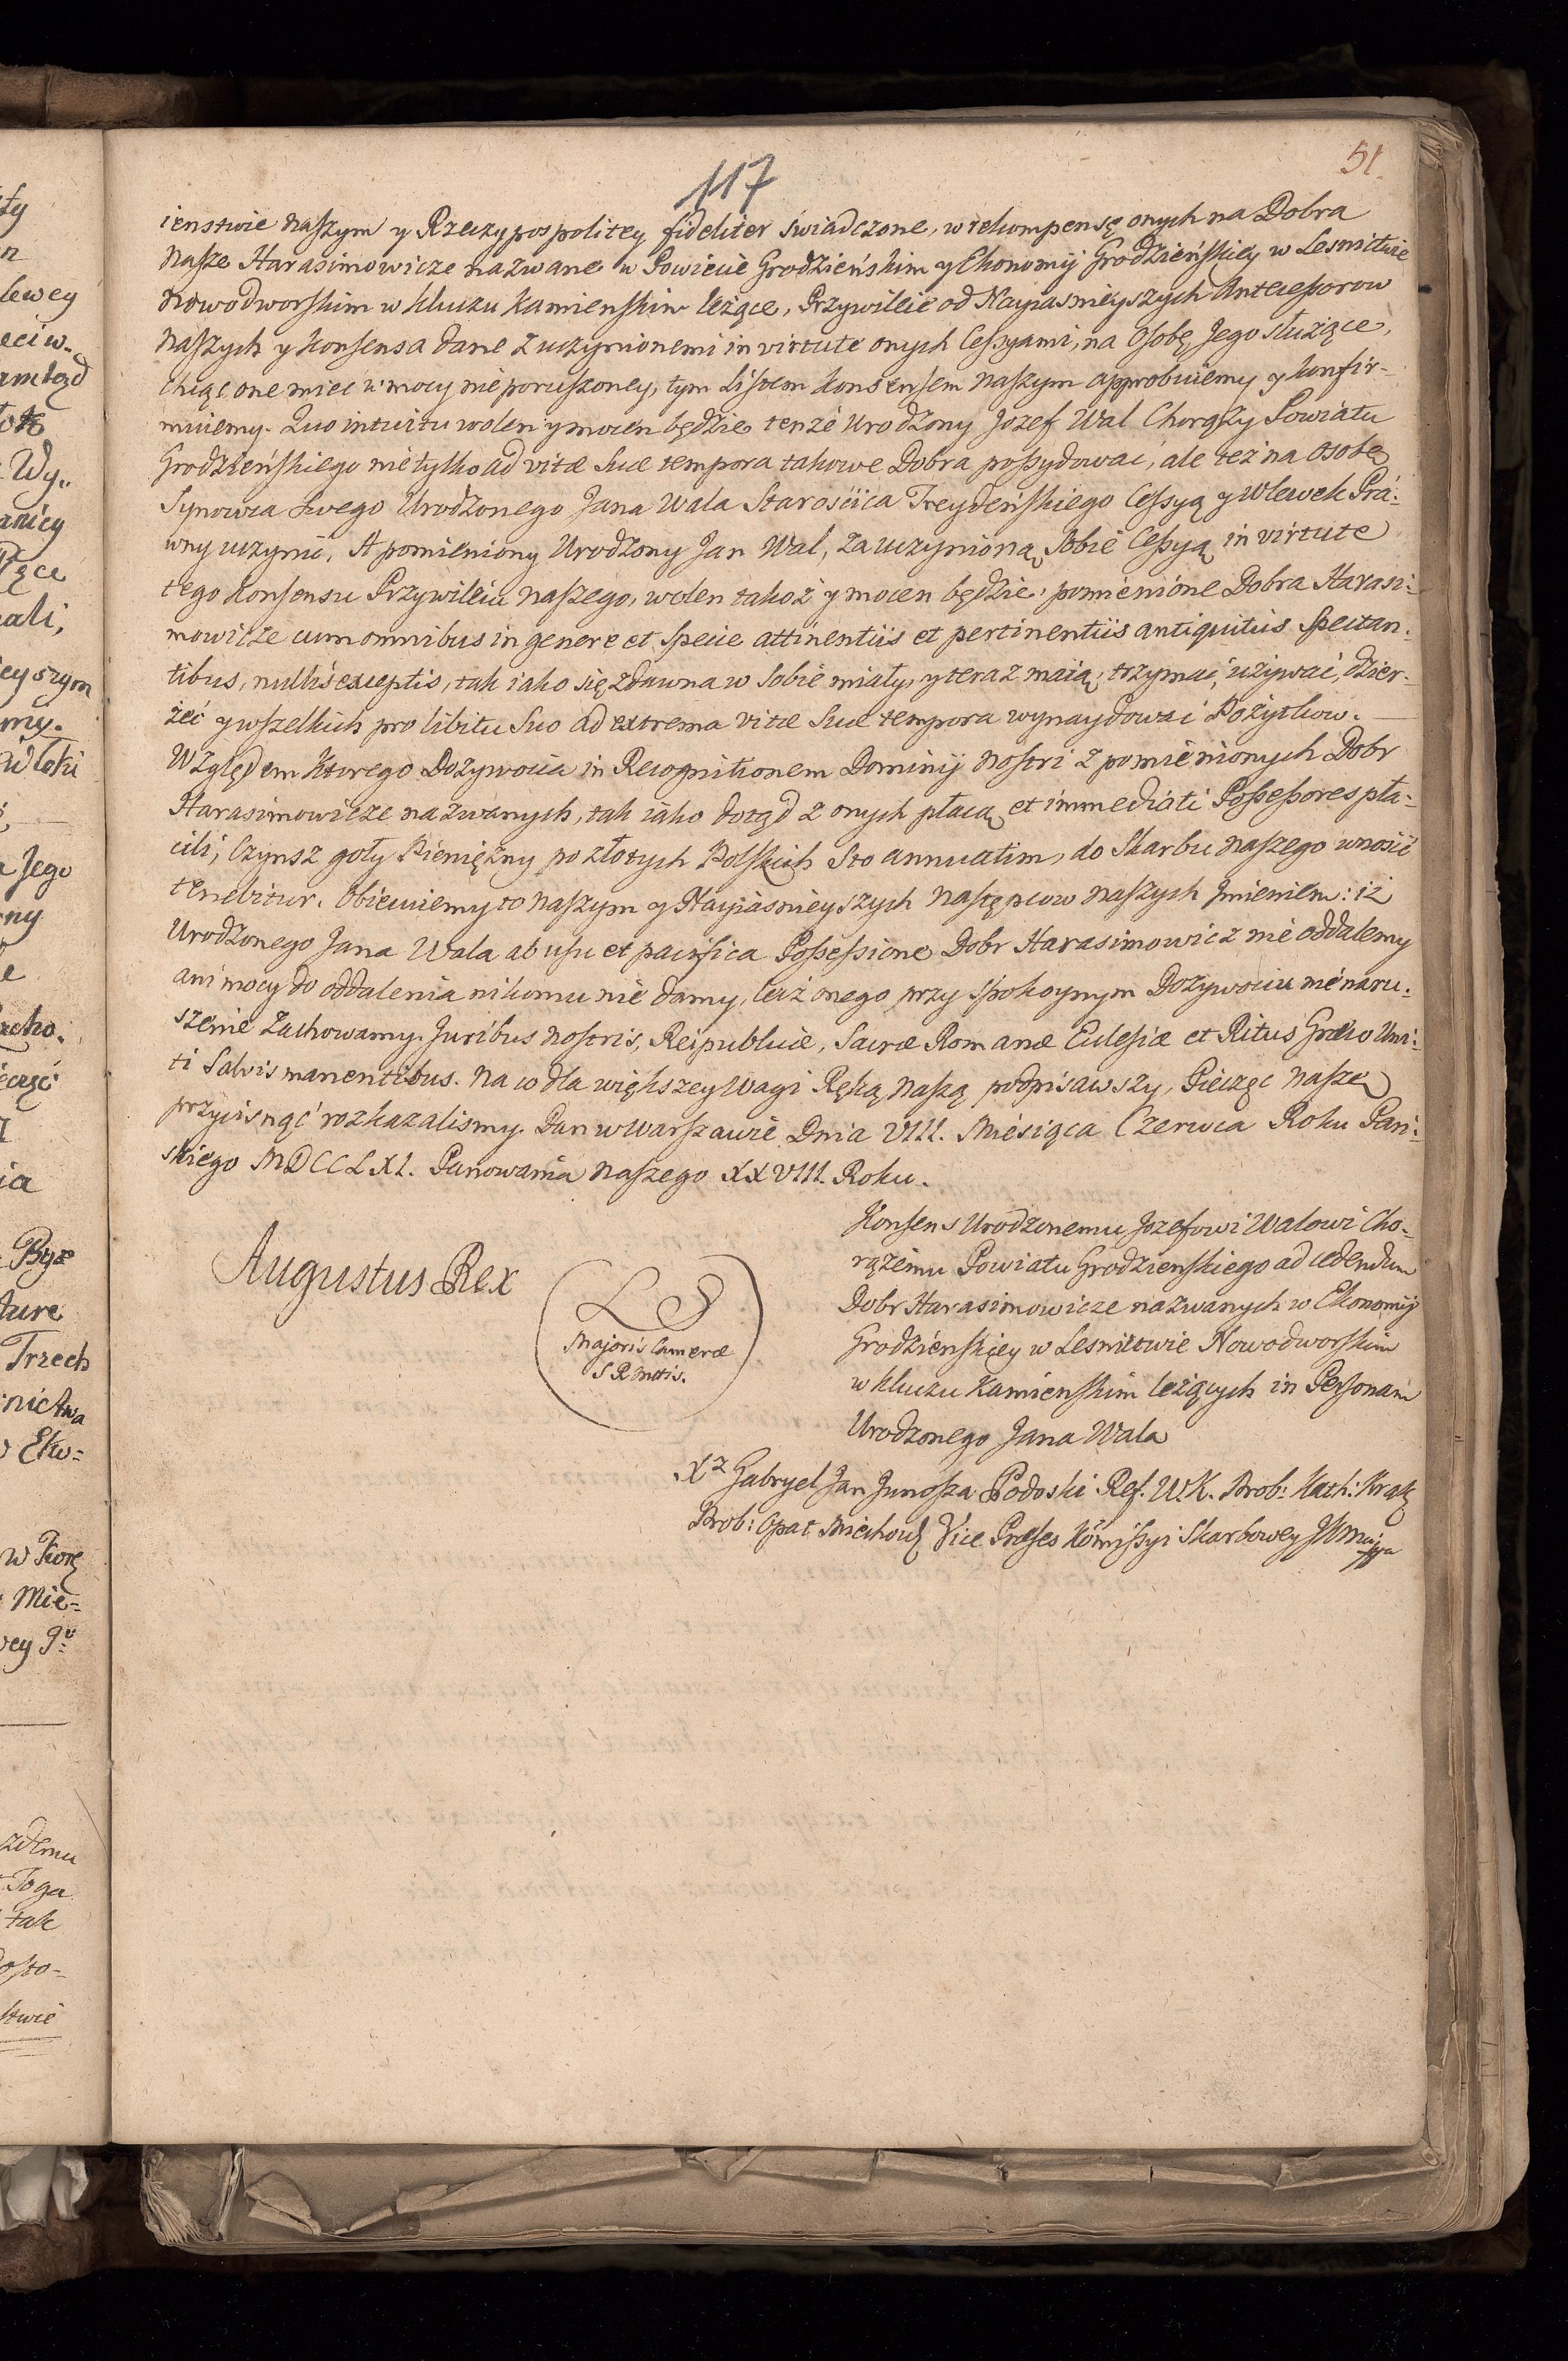 117
51.
ienstwie naszym y Rzeczypospolitey fideliter swiadczone, w rekompensę onych na Dobra
Nasze Harasimowicze nazwane w Powiecie Grodzieńskim y Ekonomij Grodzieńskiey w Lesnictwie
Nowodworskim w kluczu Kamienskim leżące, Przywileie od Nayiasnieyszych Antecessorow
Naszych y Konsensa dane z uczynionemi in virtute onych Cessyami, na Osobę Jego służące,
chcąc one miec w mocy nieporuszoney, tym Listem Konsensem Naszym approbuiemy y konfir-
muiemy. Quo intuitu wolen y mocen będzie tenże Urodzony Jozef Wal Chorąży Powiatu
Grodzieńskiego nie tylko ad vitæ suæ tempora takowe Dobra possydować, ale też na Osobę
Synowca swego Urodzonego Jana Wala Starościca Treydeńskiego Cessyą y Wlewek Pra-
wny uczynić, A pomieniony Urodzony Jan Wal, za uczynioną Sobie Cessyą in virtute
tego Konsensu Przywileiu Naszego, wolen takoż y mocen będzie, pomienione Dobra Harasi-
mowicze cum omnibus in genere et specie attinentiis et pertinentiis antiquitus spectan-
tibus, nullis exceptis, tak iako się zdawna w Sobie miały, y teraz maią; trzymać, używać, dzier-
żeć y wszelkich pro libitu suo ad extrema vitæ suæ tempora wynaydować Pożytkow.
Względem ktorego Dożywocia in Recognitionem Dominij Nostri z pomienionych Dobr
Harasimowicze nazwanych, tak iako dotąd z onych płacą et immediati Possessores pła-
cili, Czynsz goły Pieniężny po złotych Polskich Sto annuatim, do Skarbu Naszego wnosić
tenebitur. Obiecuiemy to Naszym y Nayiasnieyszych Następcow Naszych Imieniem: iż
Urodzonego Jana Wala ab usu et pacifica Possessione Dobr Harasimowicz nie oddalemy
ani mocy do oddalenia nikomu nie damy, lecz onego przy spokoynym Dożywociu nienaru-
szenie zachowamy. Juribus Nostris, Reipublicæ, Sacræ Romanæ Ecclesiæ et Ritus Græco Uni-
ti Salvis manentibus. Na co dla większey Wagi Ręką Naszą podpisawszy, Pieczęć Naszą
przycisnąć rozkazalismy. Dan w Warszawie Dnia VIII. Miesiąca Czerwca Roku Pań-
skiego MDCCLXI. Panowania Naszego XXVIII. Roku.
Augustus Rex
LS
Majoris Cameræ
S R Mttis.
Konsens Urodzonemu Jozefowi Walowi Cho-
rążemu Powiatu Grodzienskiego ad cedendum
Dobr Harasimowicze nazwanych w Ekonomij
Grodzieńskiey w Lesnictwie Nowodworskim
w kluczu Kamienskim leżących in Personam
Urodzonego Jana Wala
Xz Gabryel Jan Junosza Podoski Ref. W.K. Prob: Kath: Krak
Prob: Opat Miechow Vice Præses Komissyi Skarbowey